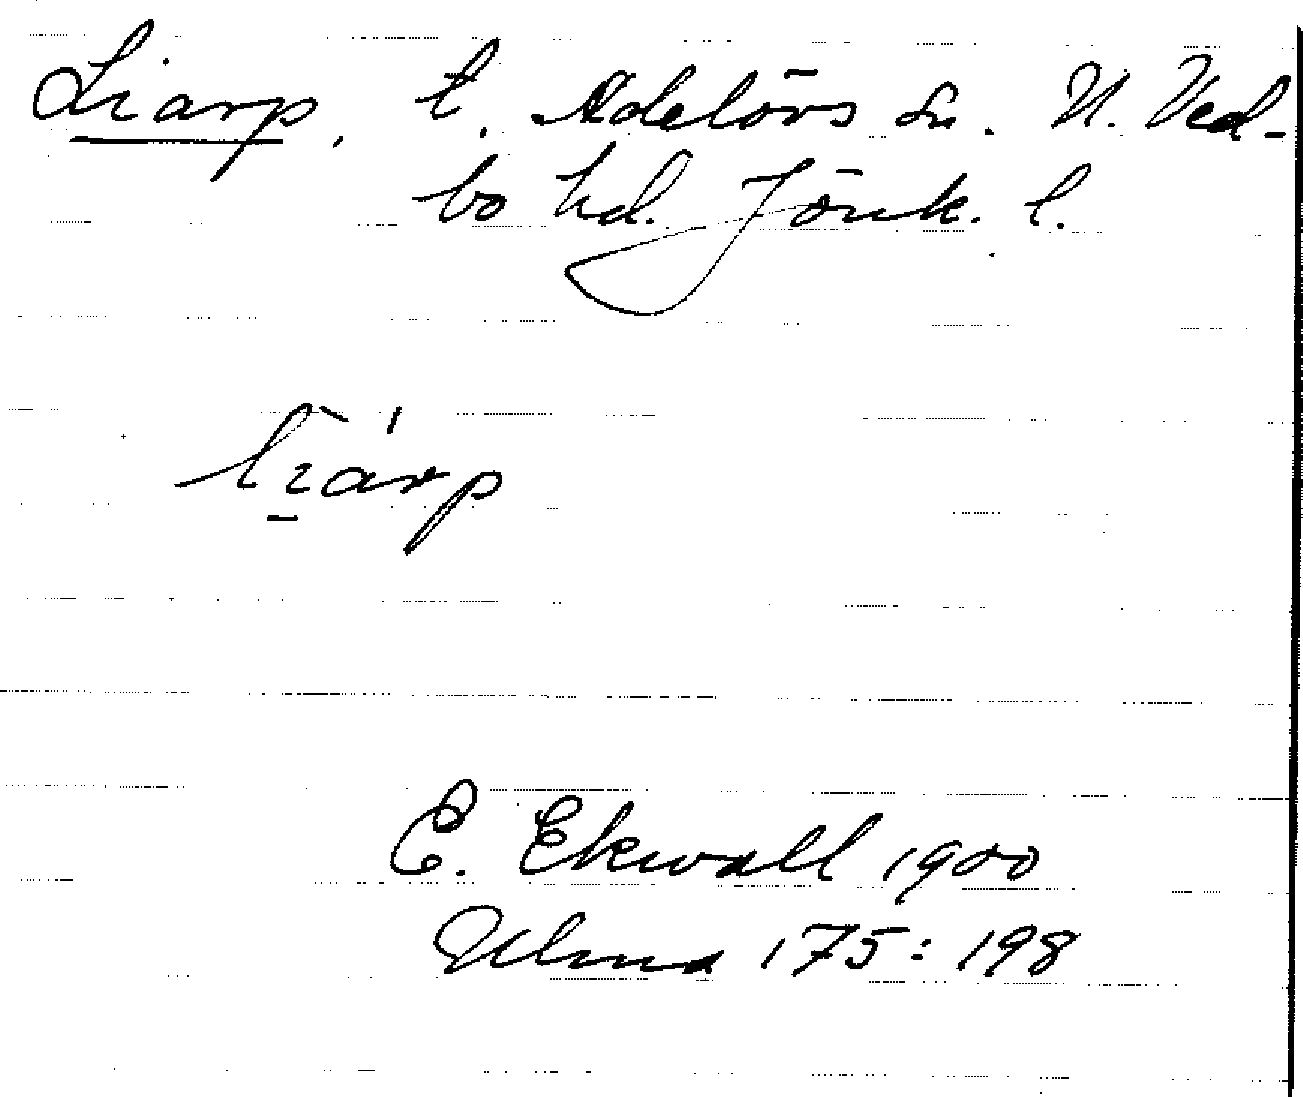 Liarp, t. Adelövs sn. N. Ved-
bo hd. Jönk. l.
līàrp
E. Ekwall 1900
Ulma 175:198